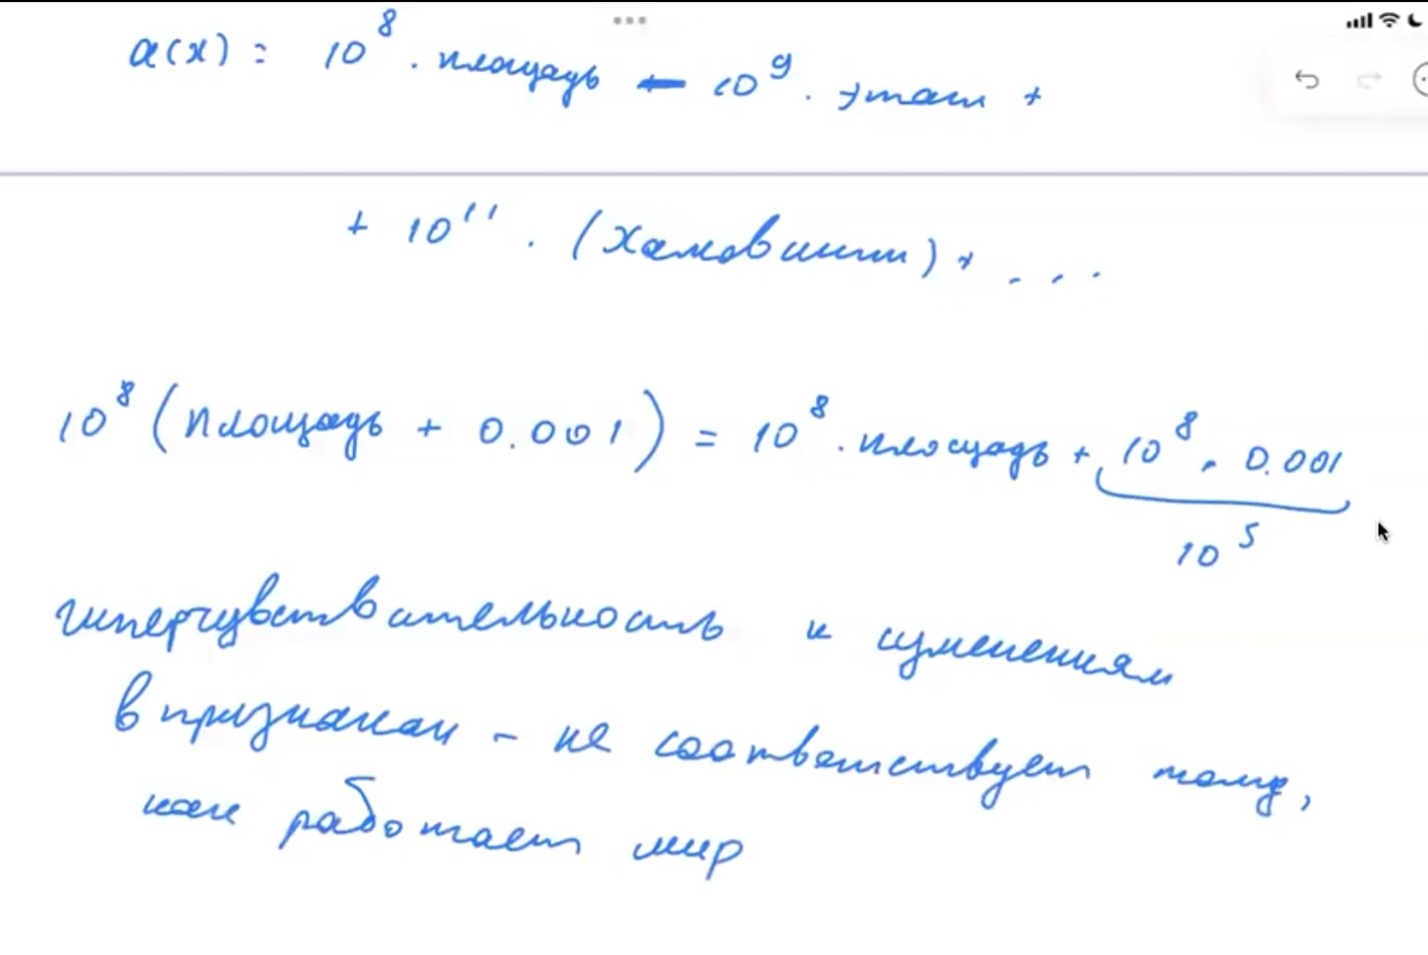 a(x) = 10⁸ · площадь - 10⁹ · этаж +
+ 10¹¹ · (Хамовники) + ...
10⁸ (площадь + 0.001) = 10⁸ · площадь + 10⁸ · 0.001
10⁵
гиперчувствительность к изменениям
в признаках - не соответствует тому,
как работает мир